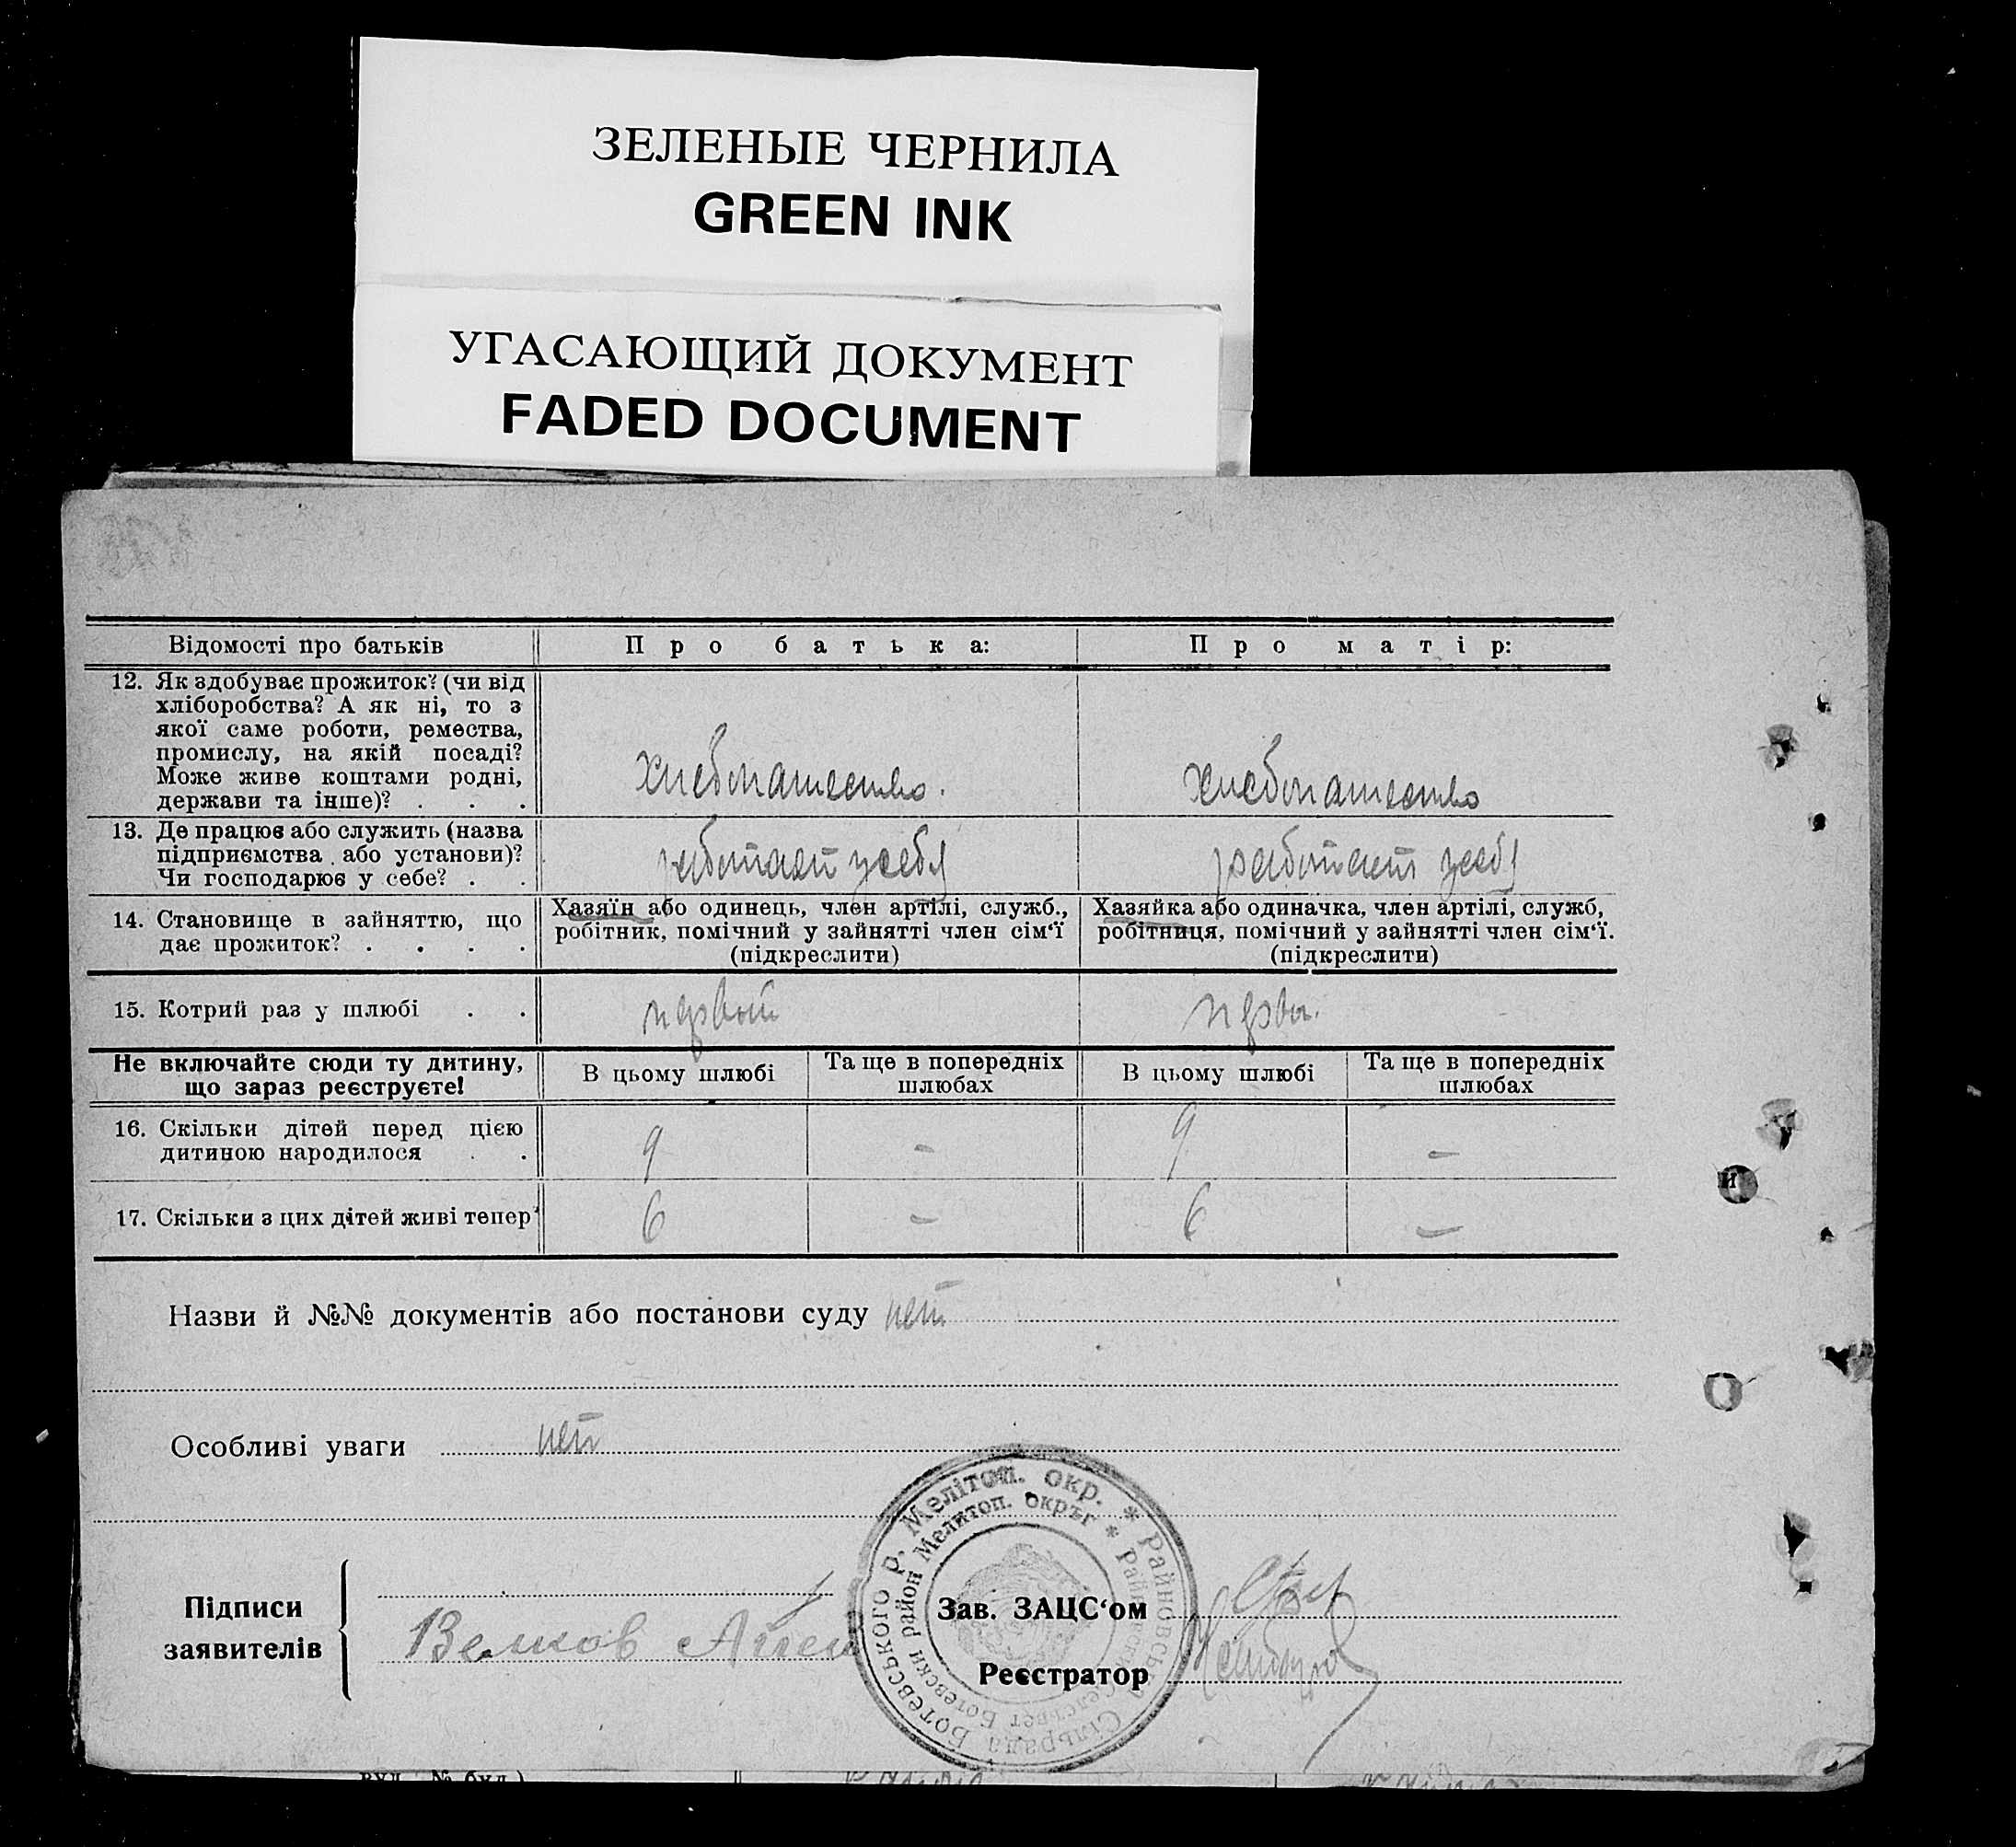 ЗЕЛЕНЫЕ ЧЕРНИЛА
GREEN INK
УГАСАЮЩИЙ ДОКУМЕНТ
FADED DOCUMENT
Відомості про батьків
Про батька:
Про матір:
12. Як здобуває прожиток? (чи від
хліборобства? А як ні, то з
якої саме роботи, ремества,
промислу, на якій посаді?
Може живе коштами родні,
держави та інше)? . . .
хлебопашество.
хлебопашество
13. Де працює або служить (назва
підприємства або установи)?
Чи господарює у себе? . .
работает у себя
работает у себя
14. Становище в зайняттю, що
дає прожиток? . . . .
Хазяїн або одинець, член артілі, служб.,
робітник, помічний у зайнятті член сім‘ї
(підкреслити)
Хазяйка або одиначка, член артілі, служб,
робітниця, помічний у зайнятті член сім‘ї.
(підкреслити)
15. Котрий раз у шлюбі . .
первый
первы.
Не включайте сюди ту дитину,
що зараз реєструєте!
В цьому шлюбі
Та ще в попередніх
шлюбах
В цьому шлюбі
Та ще в попередніх
шлюбах
16. Скільки дітей перед цією
дитиною народилося . .
9
-
9
-
17. Скільки з цих дітей живі тепер
6
-
6
-
Назви й №№ документів або постанови суду нет
Особливі уваги нет
Підписи
заявителів
Велков
Зав. ЗАЦС‘ом
Реєстратор
Районовська Сільрада Ботевського р. Мелітоп. окр. *
Ботевски район Мелитоп. окръг *
вул. № буд.)